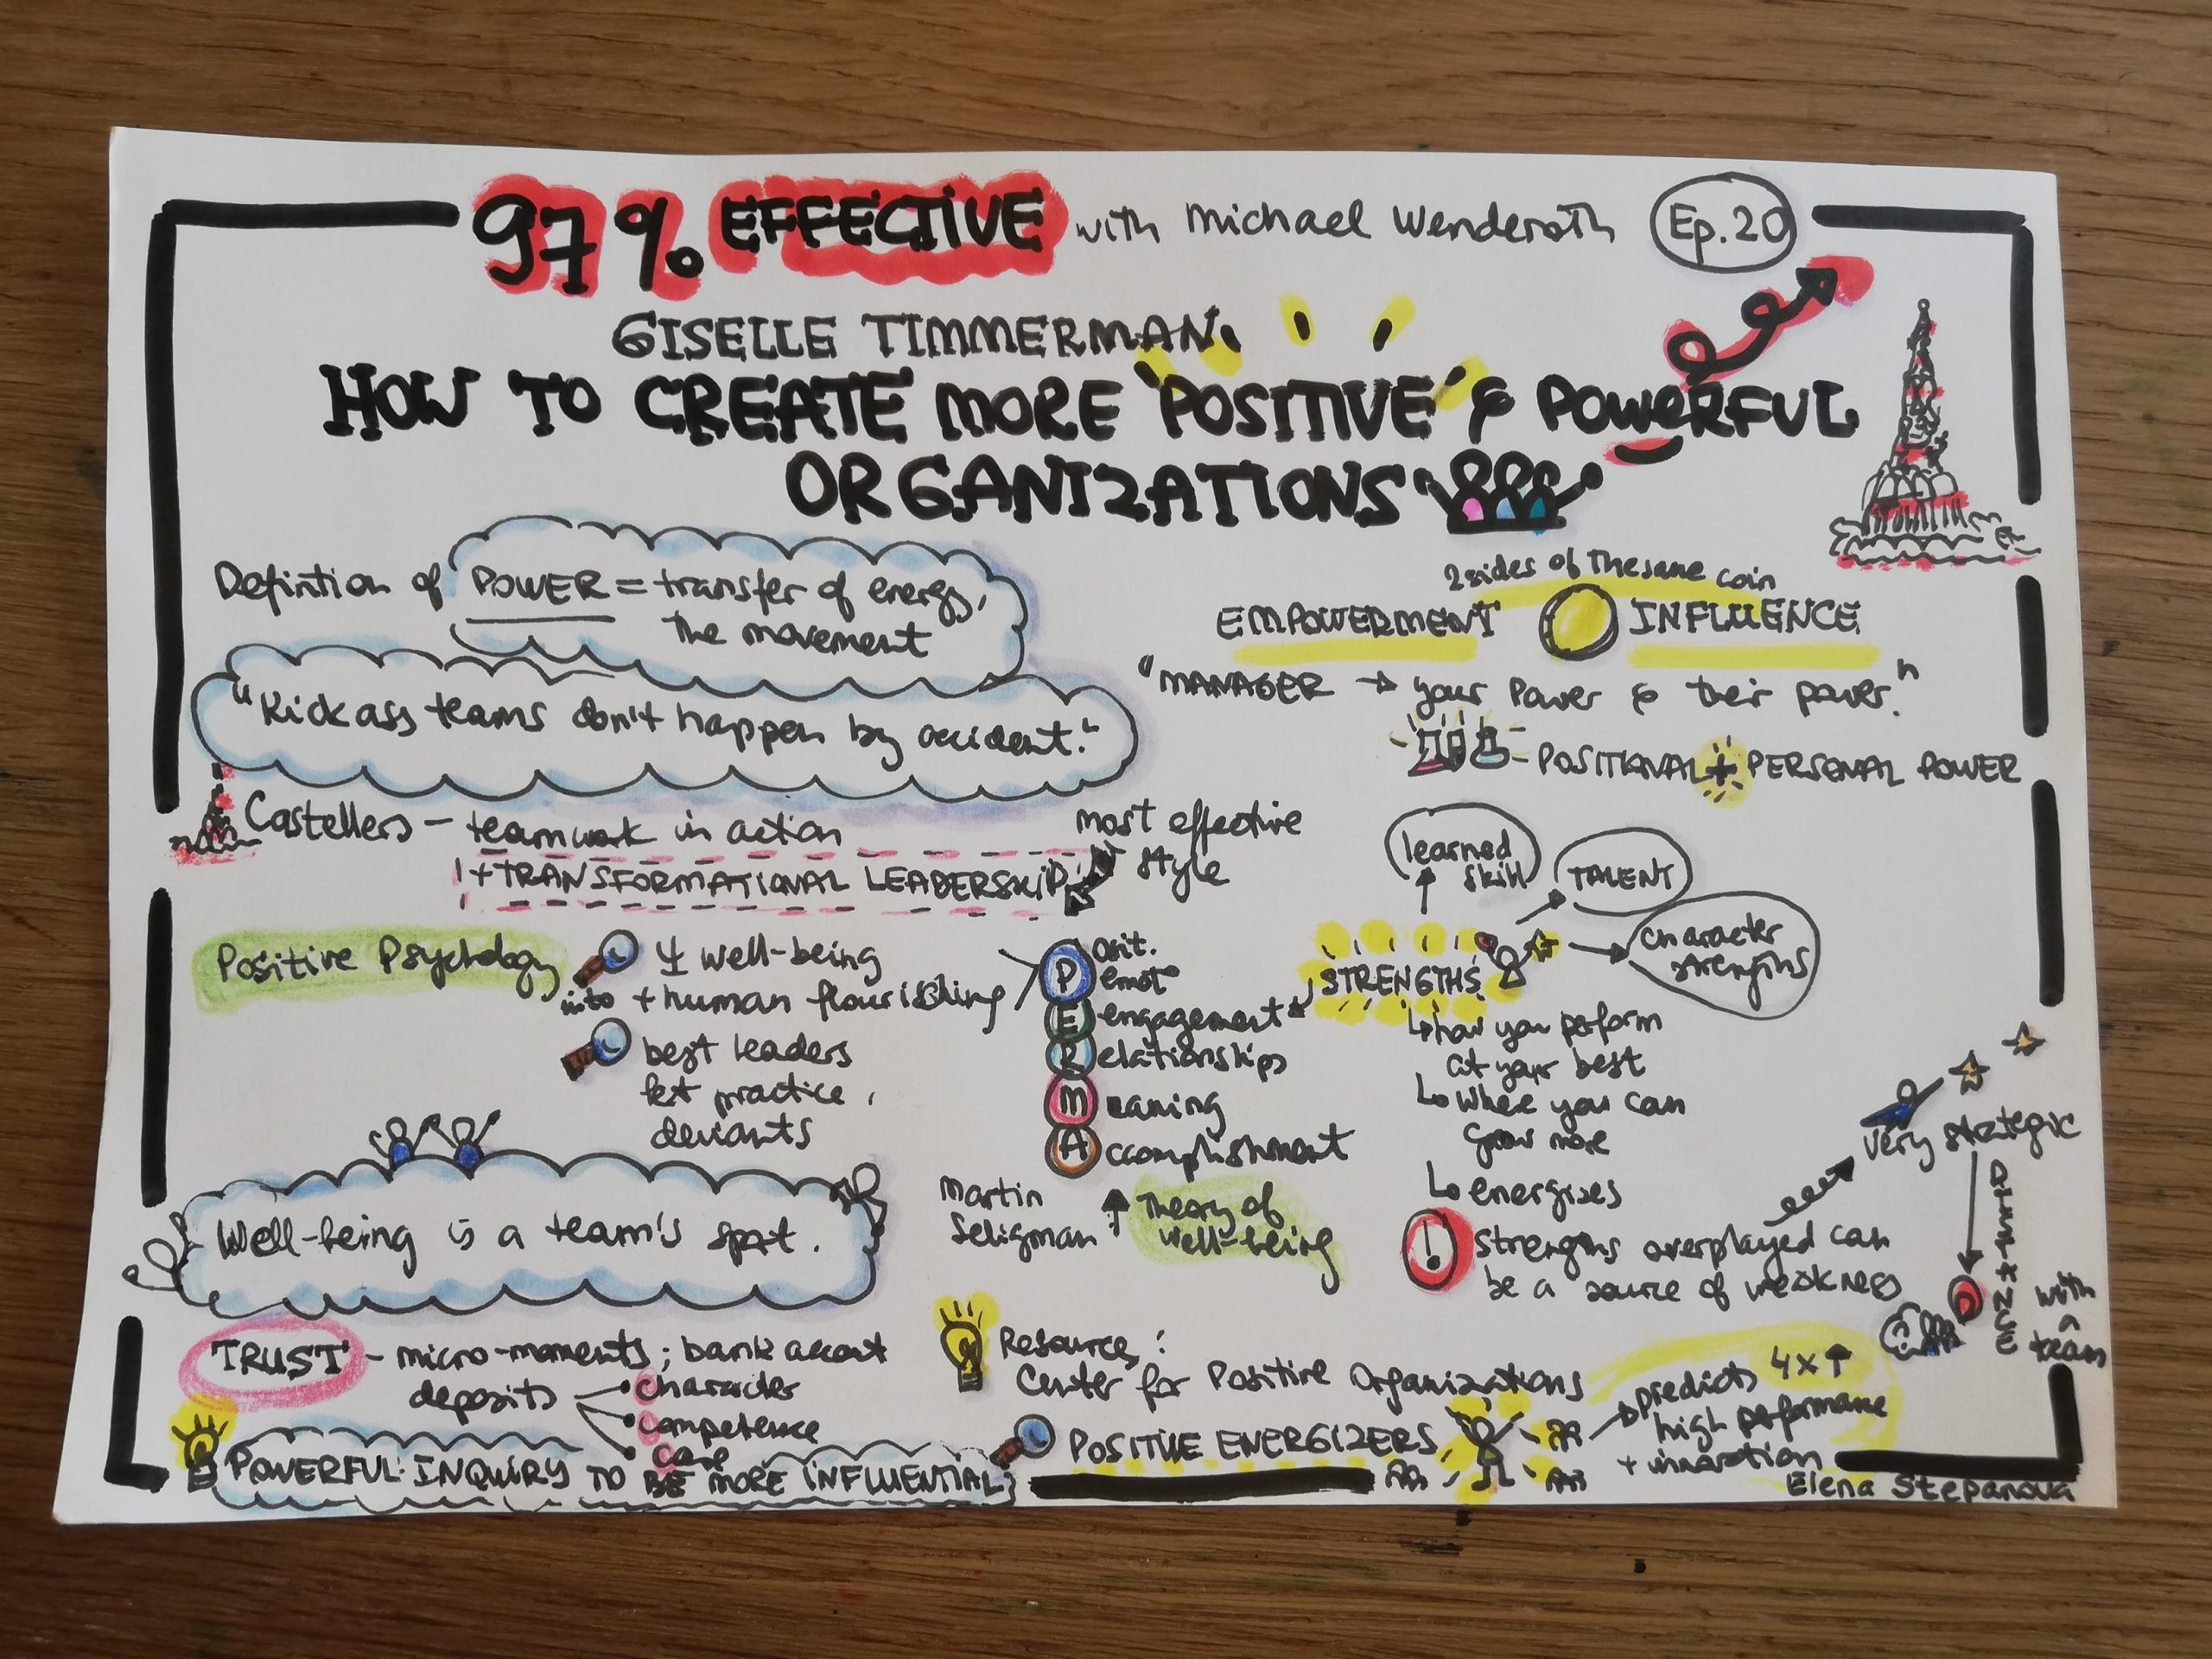 97% EFFECTIVE with Michael Wenderoth Ep.20
GISELLE TIMMERMAN
HOW TO CREATE MORE 'POSITIVE' & POWERFUL
ORGANIZATIONS
Defintion of POWER = transfer of energy,
The movement
"Kick ass teams don't happen by accident."
Castellers - teamwork in action
+ TRANSFORMATIONAL LEADERSHIP
most effective
style
2 sides of The same coin
EMPOWERMENT INFLUENCE
"MANAGER → your Power & their power."
- POSITIONAL + PERSONAL POWER
Positive Psychology
well-being
into + human flourishing
best leaders
practice,
deviants
Posit.
emot°
Engagement
Relationships
Meaning
Accomplishment
Martin
Seligman
Theory of
well-being
learned
skill
TALENT
character
strengths
STRENGTHS
how you perform
at your best
where you can
grow more
energises
! Strengths overplayed can
be a source of weakness
very strategic
DISTANCE
with
a
team
Well-being is a team's sport.
TRUST - micro-moments; bank account
deposits
character
competence
care
POWERFUL INQUIRY TO BE MORE INFLUENTIAL
Resource:
Center for Positive Organizations
POSITIVE ENERGIZERS
predicts 4x↑
high performance
+ innovation
Elena Stepanova